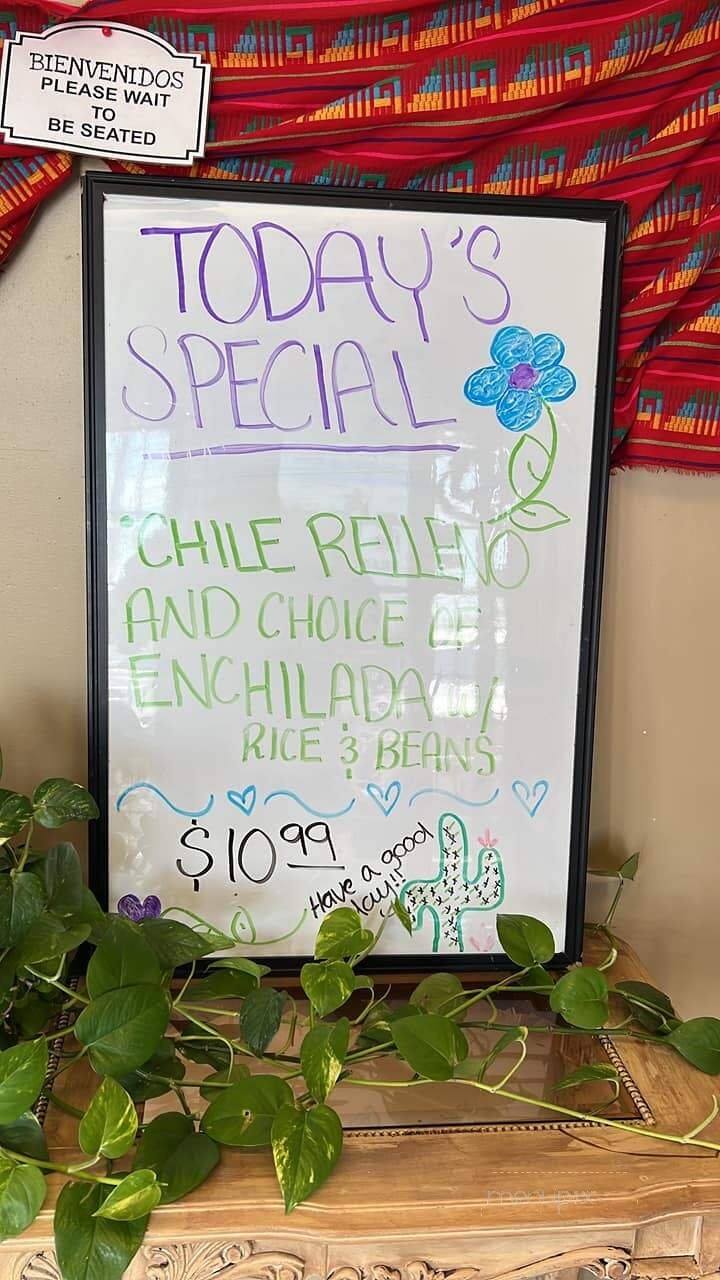 BIENVENIDOS
PLEASE WAIT
TO
BE SEATED
TODAY'S
SPECIAL
CHILE RELLENO
AND CHOICE OF
ENCHILADA W/
RICE & BEANS
$10.99
Have a good
day!!
menupix